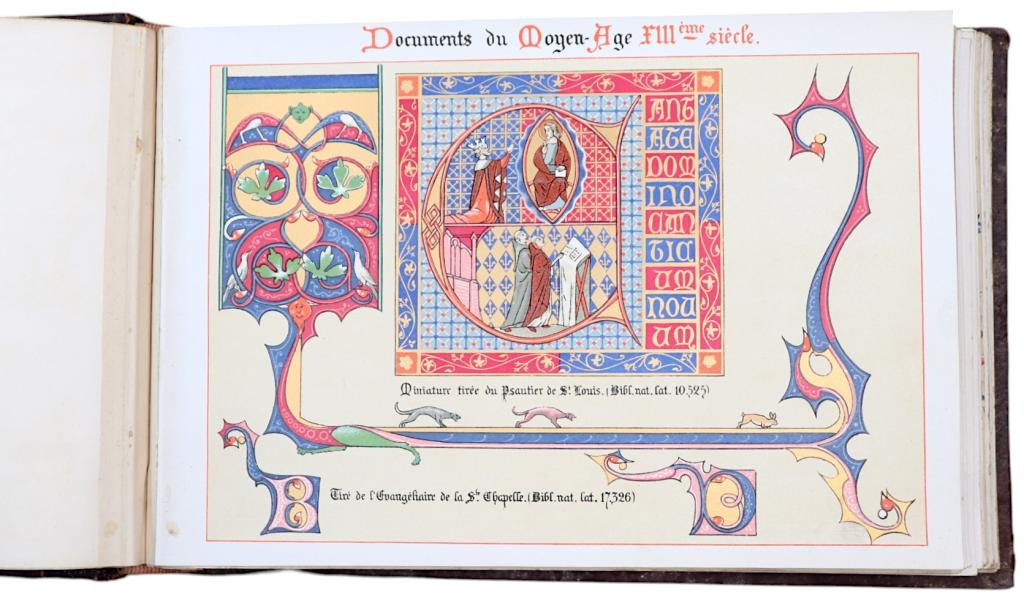 Documents du Moyen-Age XIIIème siècle.
C
ANT
ATE
DOM
INO
CAN
TIC
UM
NOU
UM
Miniature tirée du Psautier de St. Louis. (Bibl. nat. lat. 10.525)
Tiré de l'Evangéliaire de la Ste. Chapelle. (Bibl. nat. lat. 17,326)